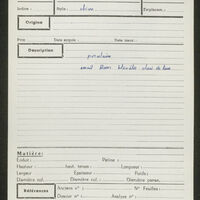 Indice : Style : chine Emplacem. :
Origine
Prix Date acquis : Date inven. :
Description
porcelaine
émail
Matière :
Enduit : Patine :
Hauteur : haut. terrain : Longueur :
Largeur Epaisseur : Poids :
Diamètre col. Diamètre : Diamètre panse.
Références Anciens n° : N° Feuilles :
Dossier n° : Analyse n° :